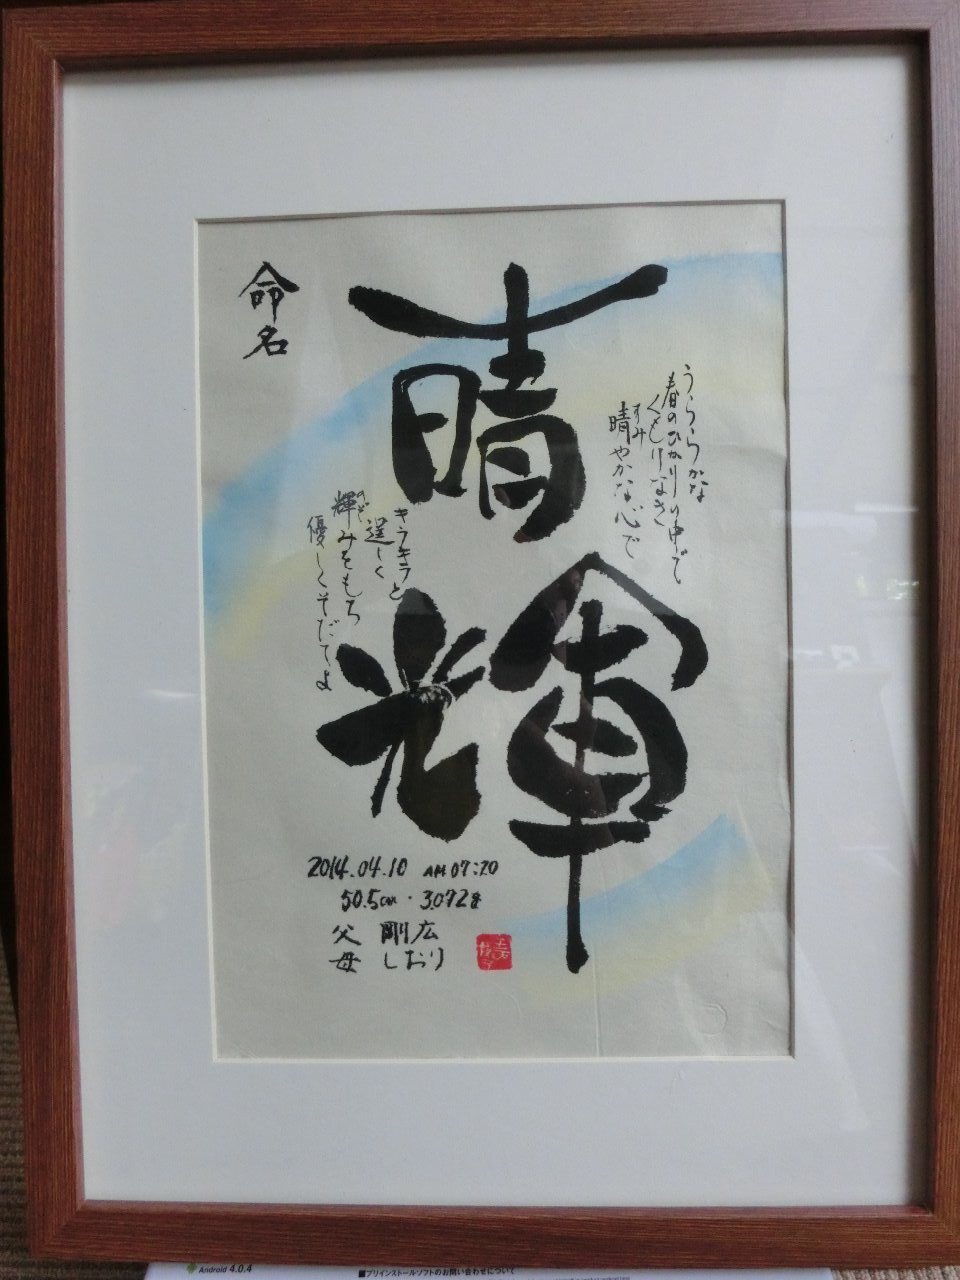 命名
晴輝
うららかな
春のひかりの中で
くもりなき
すみ
晴やかな心で
キラキラと
逞しく
のぞ
輝みをもち
優しくそだてよ
2014.04.10 AM 07:20
50.5cm・3.072g
父 剛広
母 しおり
Android 4.0.4
■プリインストールソフトのお問い合わせについて